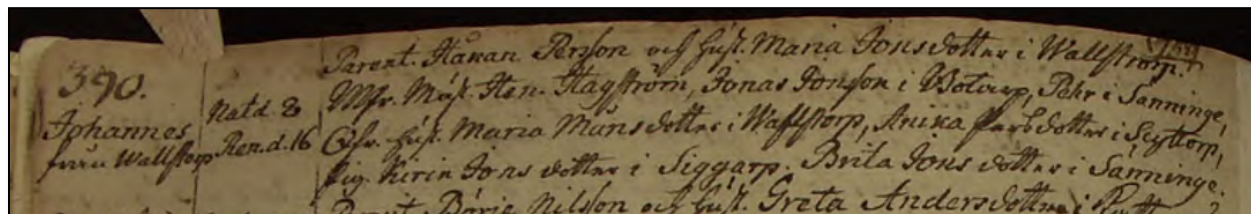 390.
Johannes
från Wallstorp
Nat. d. 8
Ren. d. 16
Parent. Håkan Persson och hust. Maria Jonsdotter i Wallstorp.
Hen. Hagström, Jonas Jonson i Botorp, Pehr i Sanninge,
hust. Maria Månsdotter i Wallstorp, Anika
pig. Kirin Jonsdotter i Siggarp. Brita Jonsdotter i Sanninge.
Parent. Börje Nilsson och hust. Greta Andersdotter i